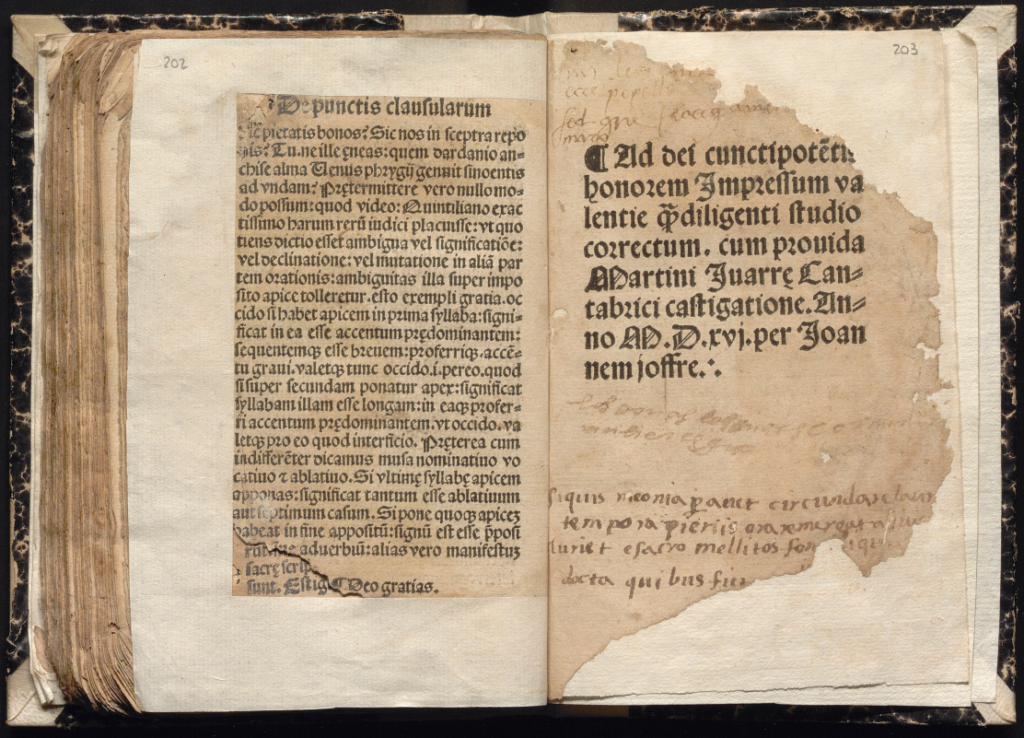 202
De punctis clausularum
pietatis honos? Sic nos in sceptra repo
nis? Tu. ne ille ęneas: quem dardanio an-
chise alma Uenus phrygij genuit simoentis
ad vndam? Prętermittere vero nullo mo-
do possum: quod video: Quintiliano exac
tissimo harum rerū iudici placuisse: vt quo
tiens dictio esset ambigua vel significatiōe:
vel declinatione: vel mutatione in aliā par
tem orationis: ambiguitas illa super impo
sito apice tolleretur. esto exempli gratia. oc
cido si habet apicem in prima syllaba: signi-
ficat in ea esse accentum prędominantem:
sequentemqꝫ esse breuem: proferriqꝫ. accē-
tu graui. valetqꝫ tunc occido .i. pereo. quod
si super secundam ponatur apex: significat
syllabam illam esse longam: in eaqꝫ profer-
ri accentum prędominantem. vt occido. va
letqꝫ pro eo quod interficio. Pręterea cum
indifferēter dicamus musa nominatiuo vo
catiuo ⁊ ablatiuo. Si vltimę syllabę apicem
apponas: significat tantum esse ablatiuum
aut septimum casum. Si pone quoqꝫ apiceꝫ
habeat in fine appositū: signū est esse p̄posi
aduerbiū: alias vero manifestuꝫ
sacrę scrip
sunt. Deo gratias.
203
¶ Ad dei cunctipotētis
honorem Impressum va
lentie q̄ȝ diligenti studio
correctum. cum prouida
Martini Juarrę Can-
tabrici castigatione. An-
no M.D.xvj. per Joan
nem joffre.
siquis circundare
tempora pieriis
e sacro mellitos
docta quibus